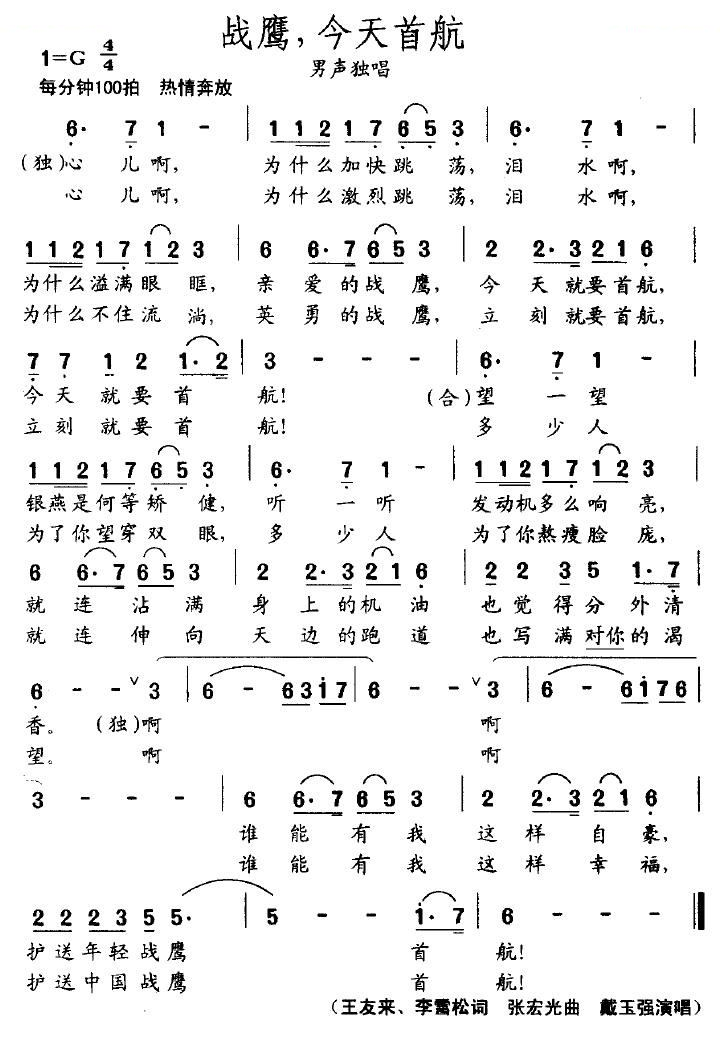 战鹰，今天首航
1=G 4/4
男声独唱
每分钟100拍 热情奔放
6· 7 1 - | 1 1 2 1 7 6 5 3 | 6· 7 1 - |
（独）心 儿 啊， 为什么加快跳 荡，泪 水 啊，
心 儿 啊， 为什么激烈跳 荡，泪 水 啊，
1 1 2 1 7 1 2 3 | 6 6· 7 6 5 3 | 2 2· 3 2 1 6 |
为什么溢满眼 眶， 亲 爱 的 战 鹰， 今 天 就要首航，
为什么不住流 淌， 英 勇 的 战 鹰， 立 刻 就要首航，
7 7 1 2 1· 2 | 3 - - - | 6· 7 1 - |
今 天 就 要 首 航！ （合）望 一 望
立 刻 就 要 首 航！ 多 少 人
1 1 2 1 7 6 5 3 | 6· 7 1 - | 1 1 2 1 7 1 2 3 |
银燕是何等矫 健， 听 一 听 发动机多么响 亮，
为了你望穿双 眼， 多 少 人 为了你熬瘦脸 庞，
6 6· 7 6 5 3 | 2 2· 3 2 1 6 | 2 2 3 5 1· 7 |
就 连 沾 满 身 上 的机 油 也 觉 得 分 外 清
就 连 伸 向 天 边 的跑 道 也 写 满 对你 的 渴
6 - - ∨ 3 | 6 - - 6 3 i 7 | 6 - - ∨ 3 | 6 - - 6 1 7 6 |
香。 （独）啊 啊
望。 啊 啊
3 - - - | 6 6· 7 6 5 3 | 2 2· 3 2 1 6 |
谁 能 有 我 这 样 自 豪，
谁 能 有 我 这 样 幸 福，
2 2 2 3 5 5· | 5 - - i· 7 | 6 - - - ‖
护 送 年 轻 战 鹰 首 航！
护 送 中 国 战 鹰 首 航！
（王友来、李雷松词 张宏光曲 戴玉强演唱）